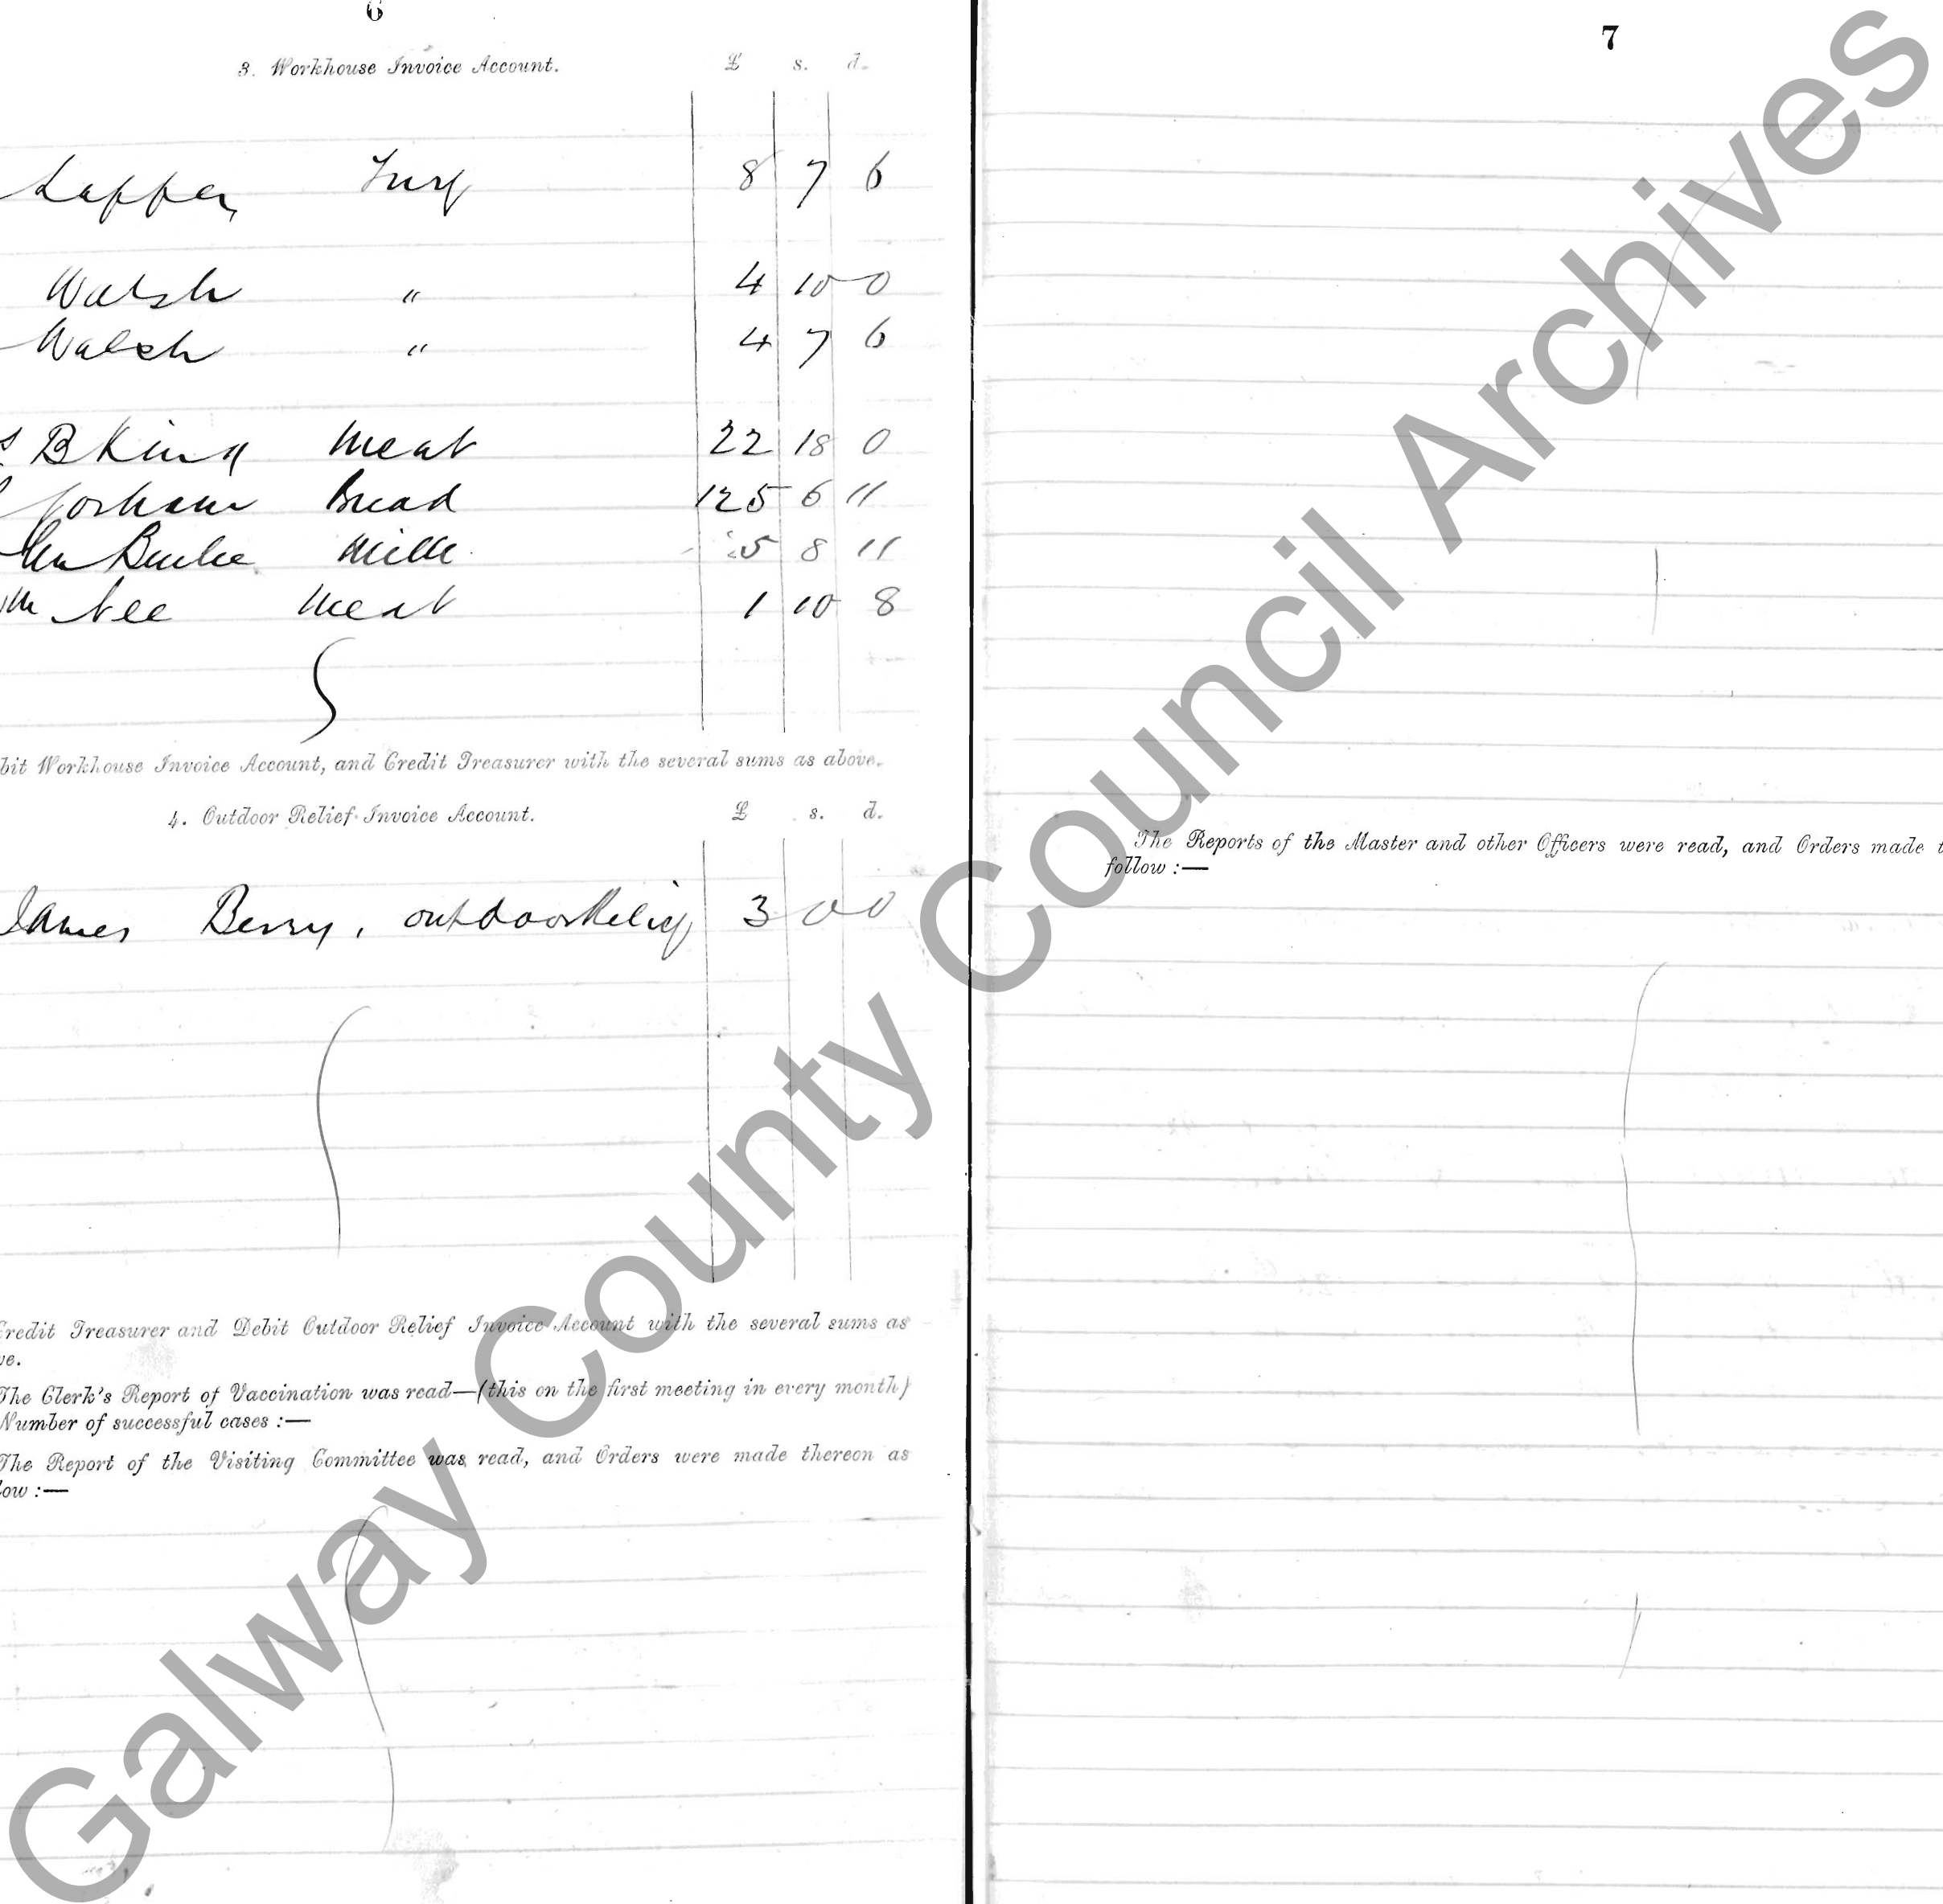 6
3. Workhouse Invoice Account. £ s. d.
Turf 8 7 6
Walsh " 4 10 0
Walsh " 4 7 6
B King Meat 22 18 0
Gorham Bread 125 6 11
Burke Milk 5 8 11
Nee Meat 1 10 8
bit Workhouse Invoice Account, and Credit Treasurer with the several sums as above.
4. Outdoor Relief Invoice Account. £ s. d.
James Berry, outdoor Relief 3 0 0
Credit Treasurer and Debit Outdoor Relief Invoice Account with the several sums as
ve.
The Clerk's Report of Vaccination was read—(this on the first meeting in every month)
Number of successful cases :—
The Report of the Visiting Committee was read, and Orders were made thereon as
low :—
7
The Reports of the Master and other Officers were read, and Orders made t
follow :—
Galway County Council Archives